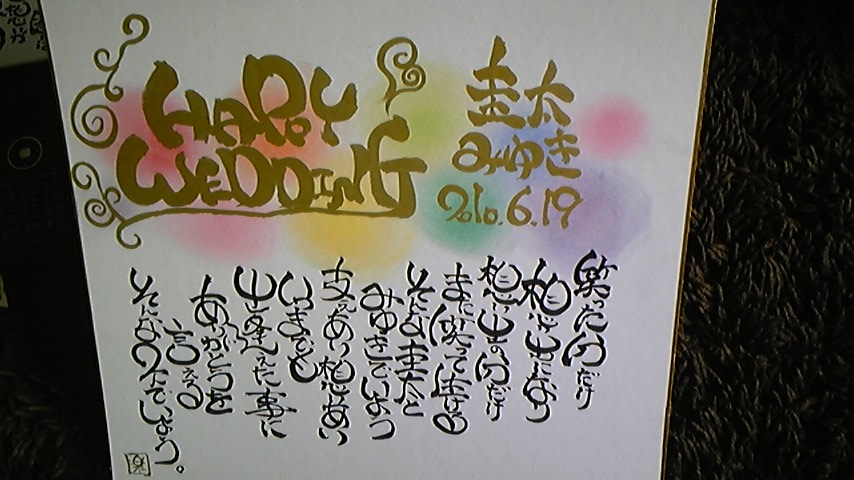 圭太
みゆき
2010.6.19
笑った分だけ
想い出になり
想い出の分だけ
また笑って歩ける
そんな圭太と
みゆきでいよう
支えあい想いあい
いつまでも
出逢えた事に
ありがとうを
言える
そんな2人でいよう。